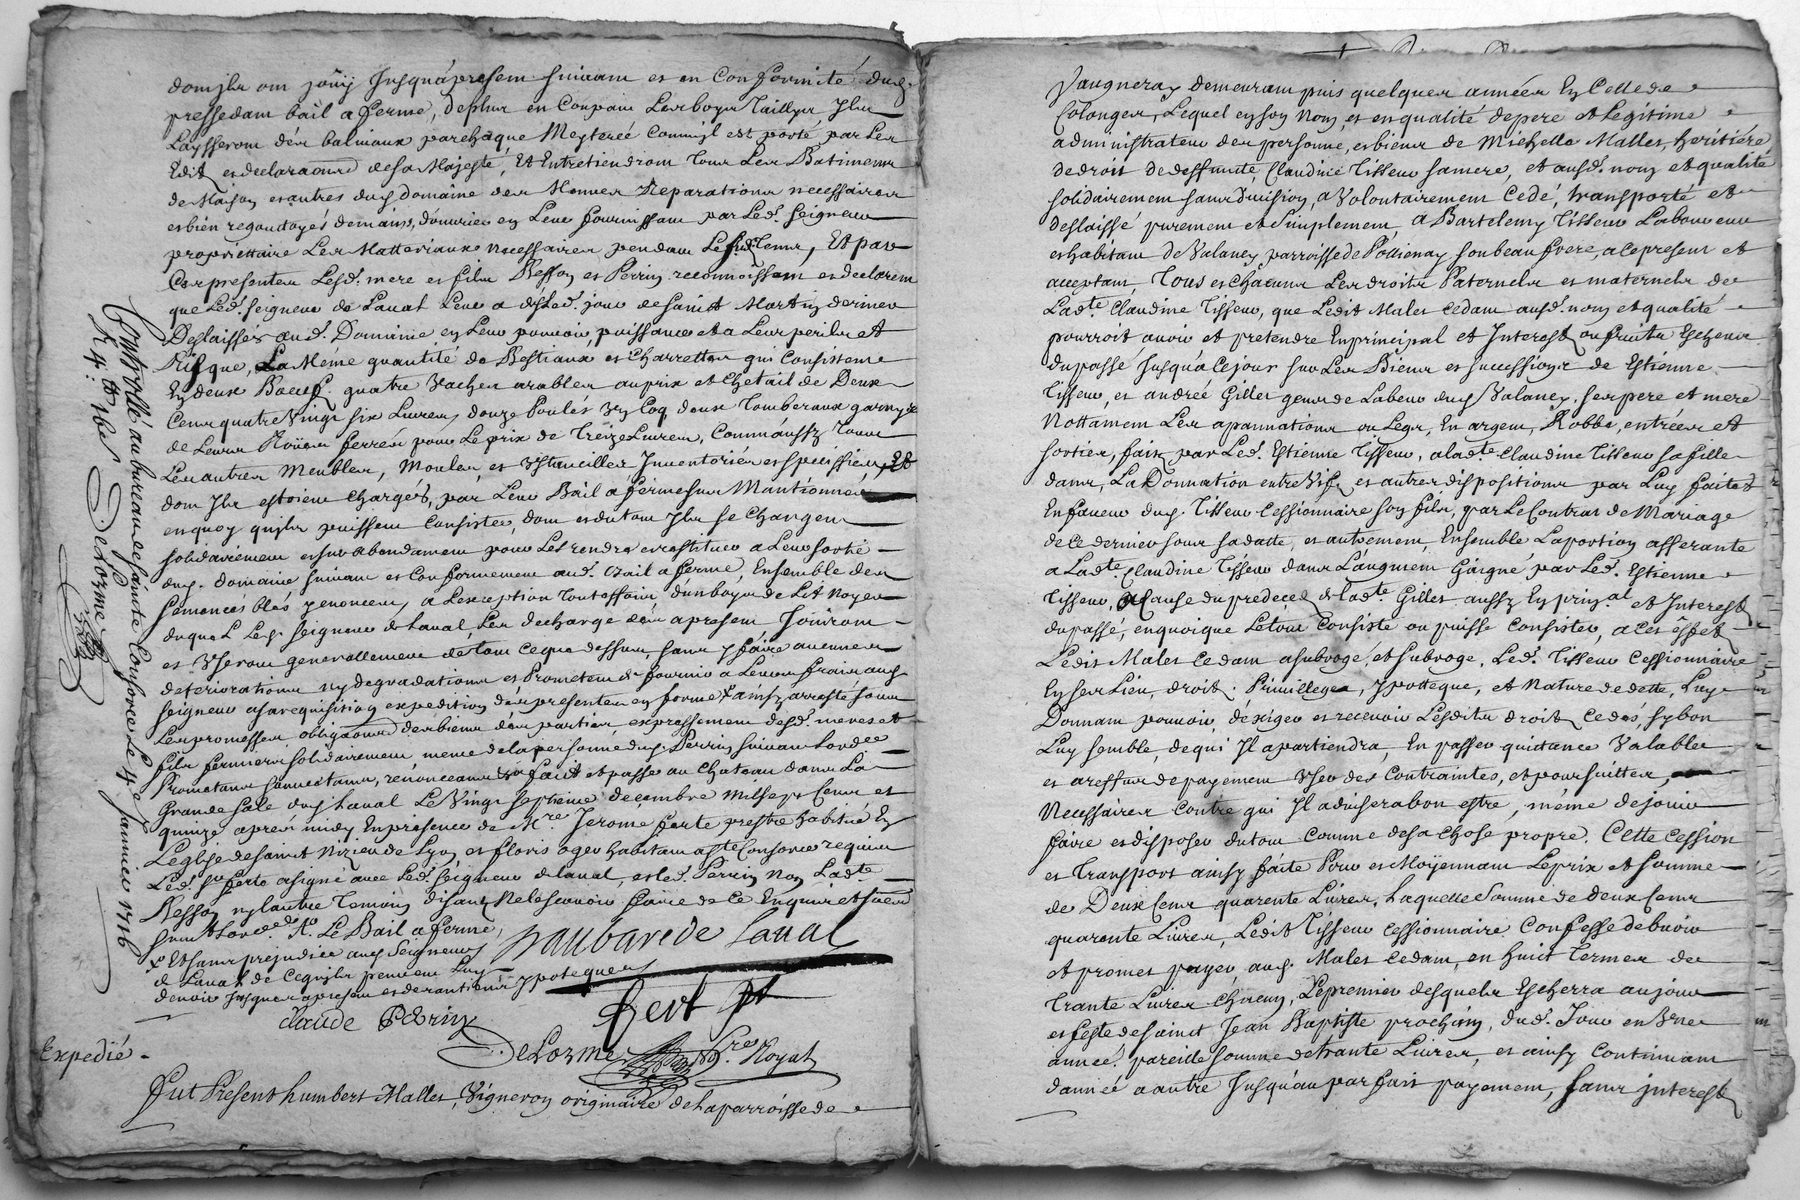 domjlz ont joüy Jusquáprésent suivant et en Conformité dud.
pressedant bail a ferme, de plus en Coupant Les boyer taillyz, Jlz
Laysseront dés baliveaux par chaque Meyterée Comm'jl est porté par Les
Edit et declaraons de sa Majesté, Et Entretiendront tous Les Batimens
de Maison et autres dud. domaine des Menues Reparations necessaires
et bien regoutoyés de mains d'ouvrier en Leur fournissant par Led. seigneur
propriettaire Les Matteriaux necessaires pendant Led. tems, Et par
Ces presentes Lesd. mere et fils Besson et Perrin reconnoissent et declarent
que Led. seigneur de Laval Leur a dez Led. jour de saint Martin dernier
Deslaissés aud. Domaine en Leur pouvoir, puissance et a Leur perilz et
Risque, La Méme quantité de Bestiaux et Charrettes qui Consistent
En deux Bœufs quatre Vaches arables au prix et Chetail de Deux
Cens quatre Vingt six Livres, douze Poules Un Coq deux tomberaux garnys
de Leurs Roües ferrés pour Le prix de treize Livres, Comm'aussy tous
Les autres Meubles, Moules et Ustancilles Inventoriés et speciffiés Et
dont Jlz estoient chargés, par Leur Bail a ferme sus Mantionné
en quoy qu'jlz puissent Consister, dont et du tout Jlz se Chargent
solidairement et surabondament pour Les rendre et restituer a Leur sortie
dud. domaine suivant et Conformement aud. Bail a ferme, Ensemble des
semences blés y enoncées, a L'exception toutesfois d'un boyer de Lit Noyer
duquel Led. seigneur de Laval Les decharge dez a present Jouiront
et Useront generallement de tout ce que dessus, sans y faire aucunes
deteriorations ny degradations et Promettent de fournir a Leurs frais aud.
seigneur a sa requisition expedition des presentes en forme + ainsy arresté sous
Les promesses, obligaons des biens des parties, expressement desd. mere et
fils fermiers solidairement, méme de la personne dud. Perrin suivant Lordce
Promettans soumettans, renonceans fait et passé au Chateau dans La
Grande sale dud. Laval Le Vingt septiéme decembre Mil sept Cens et
quinze aprés midy En présence de Mre. Jerome ferte prestre habitué En
L'eglise de saint Nizier de Lyon et floris oger habitant a ste Consorce requis
Led. sr ferte a signé avec Led. seigneur de Laval, et led. Perrin Non Ladte.
Besson ny lautre temoin disant Ne le scavoir faire de ce Enquis et suivant
Lordce. R. Le Bail a ferme,
+ Et sans prejudice aud. Seigneur
de Laval de Ce qu'jlz peuvent Luy
devoir Jusques a present et de ranterieur ypoteques
vaubarede Laval
fert pt
claude PERrin
DeLorme Nore. Royal
Expedié.
Fut Present humbert Malles, Vigneron originaire de la parroisse de
Controllé au bureau de sainte Consorce Le 4e Janvier 1716
R 4 tt 16 s Delorme
Vaugneray demeurant puis quelques années En Celle de
Colonges, Lequel en son Nom, et en qualité de pere et Légitime
administrateur des personne, et biens de Michelle Malles, heritiére
de droit de deffunte Claudine tisseur sa mere, et ausd. nom et qualité
solidairement sans division, a Volontairement Cedé, transporté et
deslaissé purement et Simplement, a Bartelemy tisseur Laboureur
et habitant de Valaney parroisse de Pollienay son beau frere, a ce present et
acceptant, Tous et chacuns Les droits Paternels et maternels de
Ladte. Claudine tisseur, que Ledit Malles Cedant ausd. nom et qualité
pourroit avoir et pretendre En principal et Interest ou fruits Escheus
du passé Jusqu'à Cejour sur Les Biens et successions de Estienne
tisseur, et andrée Gilles gens de Labeur dud. Valaney. ses pere et mere
Nottament Les apannations ou Legs, En argent, Robbe, entrées et
sorties, faits par Led. Estienne tisseur, a ladte. Claudine tisseur sa fille
dans, La Donnation entre Vifs et autres dispositions par Luy faites
En faveur dud. tisseur Cessionnaire son fils, par Le Contrat de Mariage
de Ce dernier sous sa datte, et autrement, Ensemble La portion afferante
a Ladte. Claudine tisseur dans L'augment Gaigné par Led. Estienne
tisseur, a Cause du predecez de Ladte. Gilles aussy En prinpal et Interest
du passé, en quoi que Le tout Consiste ou puisse Consister, a Ces éffets
Ledit Males Cedant a subrogé, et subroge, Led. tisseur Cessionnaire
En ses Lieu, droit. Privilleges, ypotteque, et Nature de dette, Luy
Donnant pouvoir, d'exiger et recevoir Lesdits droits Cedés, sy bon
Luy semble, de qui Jl apartiendra, En passer quittance Valable
et a reffus de payement User des Contraintes, et poursuittes,
Necessaires Contre qui Jl advisera bon estre, méme de jouir
faire et disposer du tout Comme de sa chose propre. Cette Cession
et transport ainsy faite Pour et Moÿennant Le prix et somme
de Deux Cens quarente Livres, Laquelle Somme de deux Cens
quarente Livres, Ledit tisseur Cessionnaire Confesse debvoir
et promet payer aud. Males Cedant, en huict termes de
trante Livres Chacun, Le premier desquelz Escherra au jour
et feste de sainct Jean Baptiste prochain, dud. Jour en Une
année pareille somme de trante Livres, et ainsy Continuant
d'année a autre Jusqu'au parfait payement, sans interest